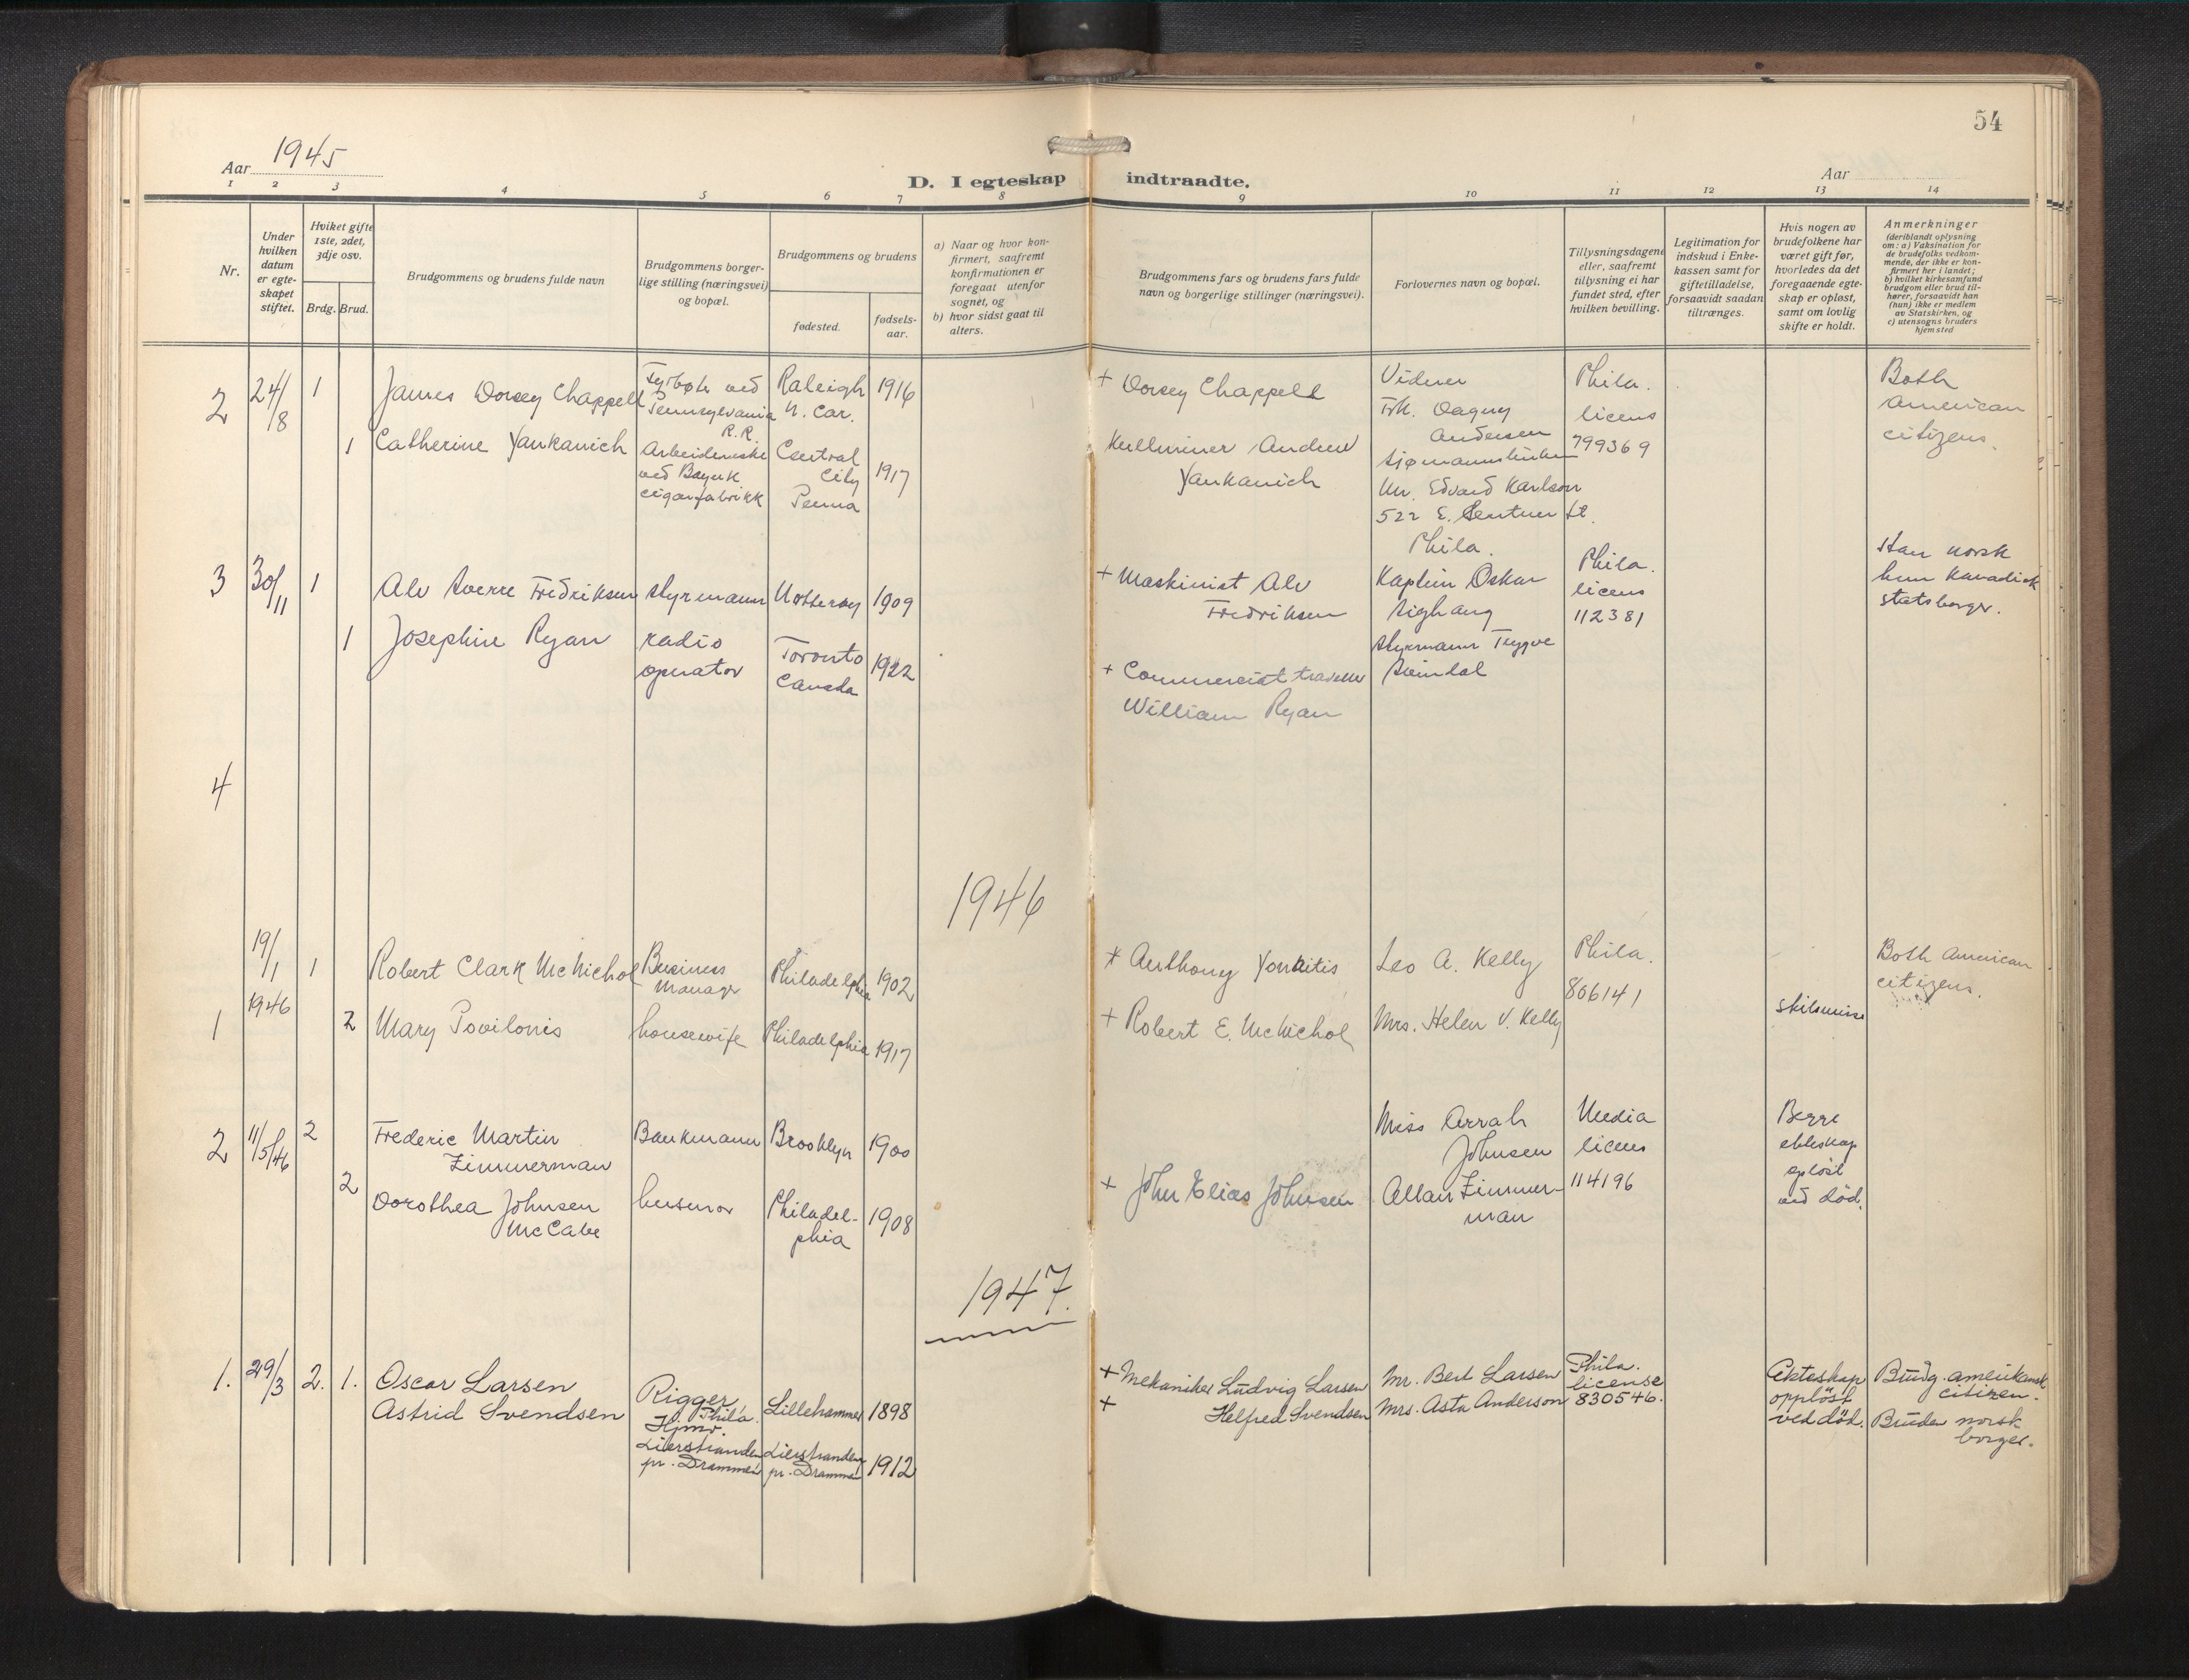 54
Aar 1945
D. I egteskap indtraadte.
Aar
1 2 3 4 5 6 7 8 9 10 11 12 13 14
Nr.
Under
hvilken
datum
er egte-
skapet
stiftet.
Hviket gifte
1ste, 2det,
3dje osv.
Brdg. Brud.
Brudgommens og brudens fulde navn
Brudgommens borger-
lige stilling (næringsvei)
og bopæl.
Brudgommens og brudens
fødested.
fødsels-
aar.
a) Naar og hvor kon-
firmert, saafremt
konfirmationen er
foregaat utenfor
sognet, og
b) hvor sidst gaat til
alters.
Brudgommens fars og brudens fars fulde
navn og borgerlige stillinger (næringsvei).
Forlovernes navn og bopæl.
Tillysningsdagene
eller, saafremt
tillysning ei har
fundet sted, efter
hvilken bevilling.
Legitimation for
indskud i Enke-
kassen samt for
giftetilladelse,
forsaavidt saadan
tiltrænges.
Hvis nogen av
brudefolkene har
været gift før,
hvorledes da det
foregaaende egte-
skap er opløst,
samt om lovlig
skifte er holdt.
Anmerkninger
(deriblandt oplysning
om: a) Vaksination for
de brudefolks vedkom-
mende, der ikke er kon-
firmert her i landet;
b) hvilket kirkesamfund
brudgom eller brud til-
hører, forsaavidt han
(hun) ikke er medlem
av Statskirken, og
c) utensogns bruders
hjemsted
2
24/8
1
James Dorsey Chappell
Fyrbøter ved
Pennsylvania
R.R.
Raleigh
N. Car.
1916
+ Dorsey Chappell
Vidner
Frk. Dagny
Andersen
Sjømannskirken
Phila.
licens
799369
Both
American
citizens.
1
Catherine Yankanich
ved Bayuk
cigarfabrikk
Central
City
Penna
1917
Kullminer Andrew
Yankanich
Mr. Edvard Karlson
522 E. St.
Phila.
3
30/11
1
Alv Sverre Fredriksen
styrmann
Nøtterøy
1909
+ Maskinist Alv
Fredriksen
Kaptein Oskar
Styrmann Trygve
Phila.
licens
112381
Han norsk
hun kanadisk
statsborger.
1
Josephine Ryan
radio
operator
Toronto
Canada
1922
+ Commercial traveller
William Ryan
4
1946
1
19/1
1946
1
Robert Clark McNichol
Business
Manager
Philadelphia
1902
+ Anthony
Leo A. Kelly
Phila.
806141
Both American
citizens.
2
Mary Povilonis
housewife
Philadelphia
1917
+ Robert E. McNichol
Mrs. Helen V. Kelly
skilsmisse
2
11/5/46
2
Frederic Martin
Zimmerman
Bankmann
Brooklyn
1900
Miss Arrah
Johnsen
Media
licens
114196
Begge
ekteskap
opløst
ved död.
2
Dorothea Johnsen
McCabe
husmor
Philadel-
phia
1908
+ John Elias Johnsen
Allan Zimmer-
man
1947.
1.
29/3
2. 1.
Oscar Larsen
Astrid Svendsen
Rigger
Phila.
Hjmv.
Lierstranden
pr. Drammen
Lillehammer
1898
Lierstranden
pr. Drammen
1912
+ Mekaniker Ludvig Larsen
+ Helfred Svendsen
Mr. Bert Larsen
Mrs. Asta Anderson
Phila.
license
830546.
Ekteskap
oppløst
ved död.
Brudg. amerikansk
citizen.
Bruden norsk
borger.